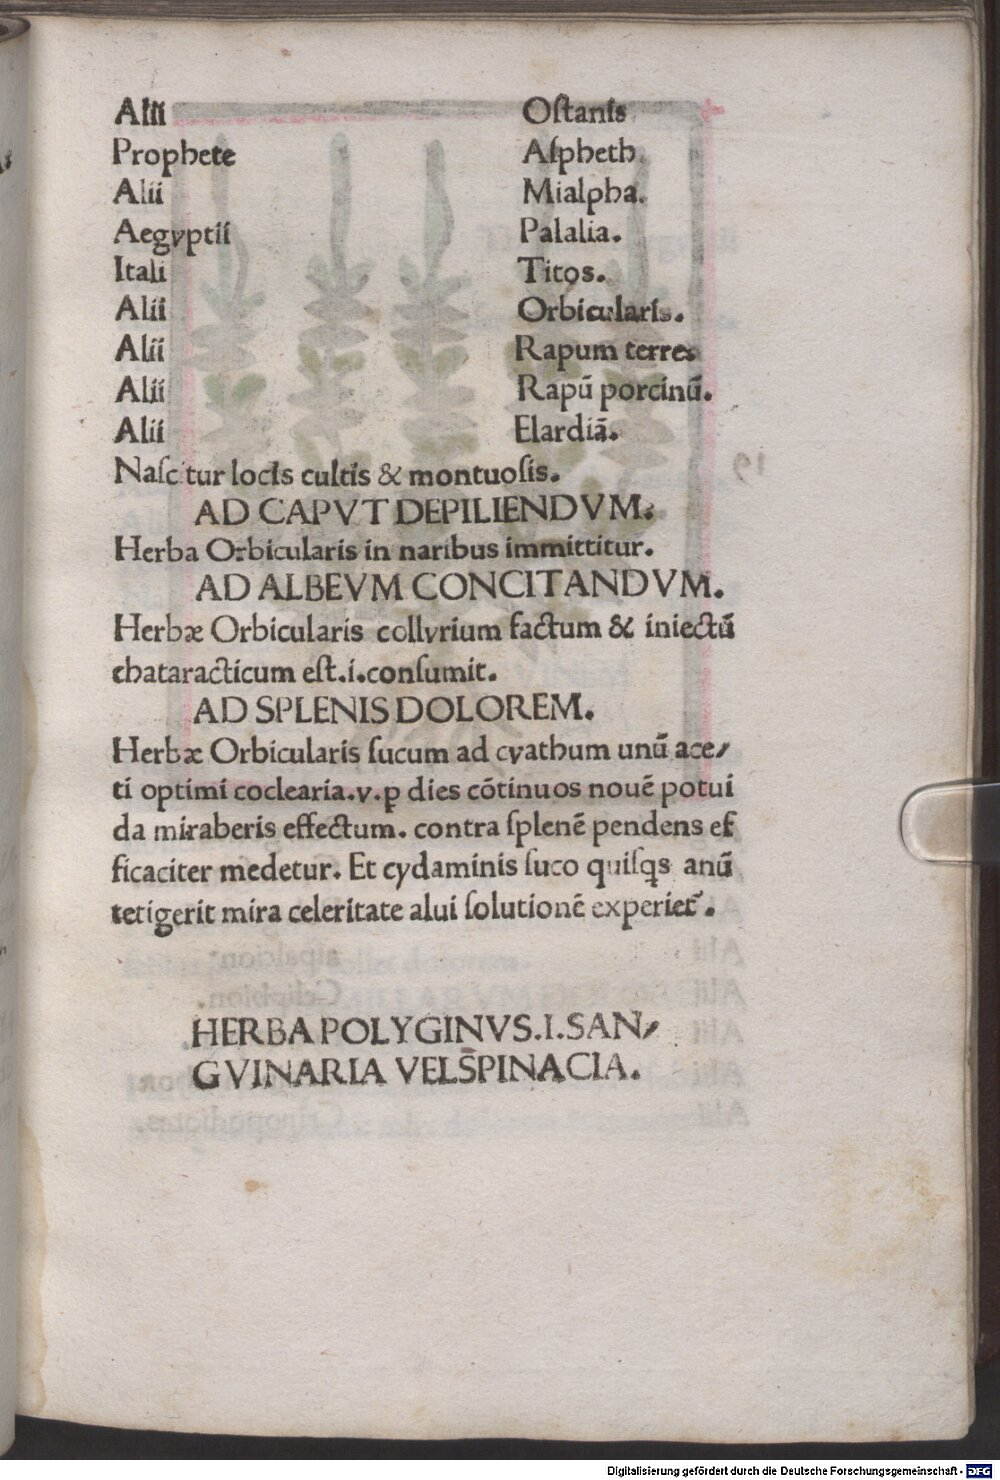 Alii Oſtanis
Prophete Aſpheth.
Alii Mialpha.
Aegyptii Palalia.
Itali Titos.
Alii Orbicularis.
Alii Rapum terre
Alii Rapū porcinū.
Alii Elardiā.
Naſcitur locis cultis & montuoſis.
AD CAPVT DEPILIENDVM.
Herba Orbicularis in naribus immittitur.
AD ALBEVM CONCITANDVM.
Herbæ Orbicularis collyrium factum & iniectū
chataracticum eſt.i.conſumit.
AD SPLENIS DOLOREM.
Herbæ Orbicularis ſucum ad cyathum unū ace/
ti optimi coclearia.v.ꝑ dies cōtinuos nouē potui
da miraberis effectum. contra ſplenē pendens ef
ficaciter medetur. Et cydaminis ſuco quiſqs anū
tetigerit mira celeritate alui ſolutionē experiet᷑.
HERBA POLYGINVS.I.SAN/
GVINARIA VEL S̄PINACIA.
Digitalisierung gefördert durch die Deutsche Forschungsgemeinschaft - DFG